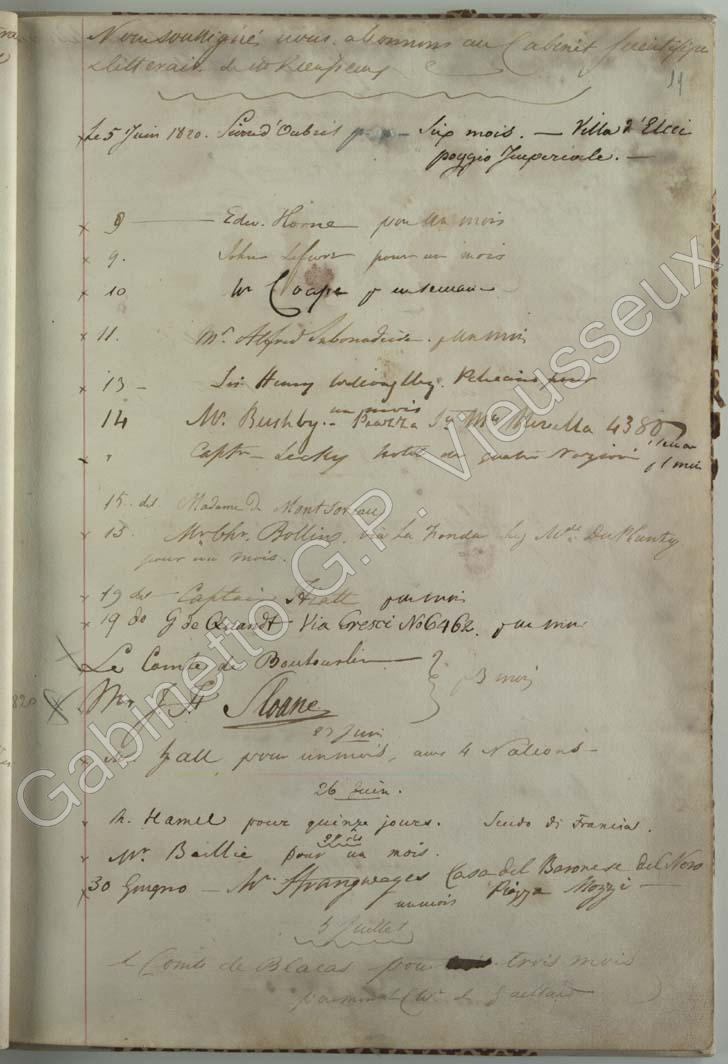 Nous soussignés nous abonnons au Cabinet scientifique
& litteraire de
19
Le 5 Juin 1820. d'Oubril p. Six mois. — Villa d'Elci
poggio Imperiale. —
8 — Edw. Horne pour un mois
9. John pour un mois
10 Mr Cooper p une semaine
11. Mr. Alfred p un mois
13 — Sir Henry Willoughby. Pelicano pour
un mois
14 Mr. Bushby. — Piazza Sa Ma Novella 4380
" Captn Lecky hotel des quatre Nazioni p 1 mois
15. do Madame de Montsoreau
15. Mr Chr. Bollins, via La Fonda chez Mde. Du Planty
pour un mois.
19 do Captain p un mois
19 do G de Quandt Via Cresci No 6462. p un mois
Le Comte de Boutourlin
p 3 mois
Mr J H Sloane
1820
27 Juin
Mr Gall pour un mois, aux 4 Nations —
26 Juin.
h. Hamel pour quinze jours. Scudo di Francia.
Mr. Baillie pour un mois.
30 Giugno — Mr Strangwayes Casa del Baronese del Nero
un mois Piazza Mozzi —
5 Juillet
Le Comte de Blacas pour trois mois
Gabinetto G.P. Vieusseux